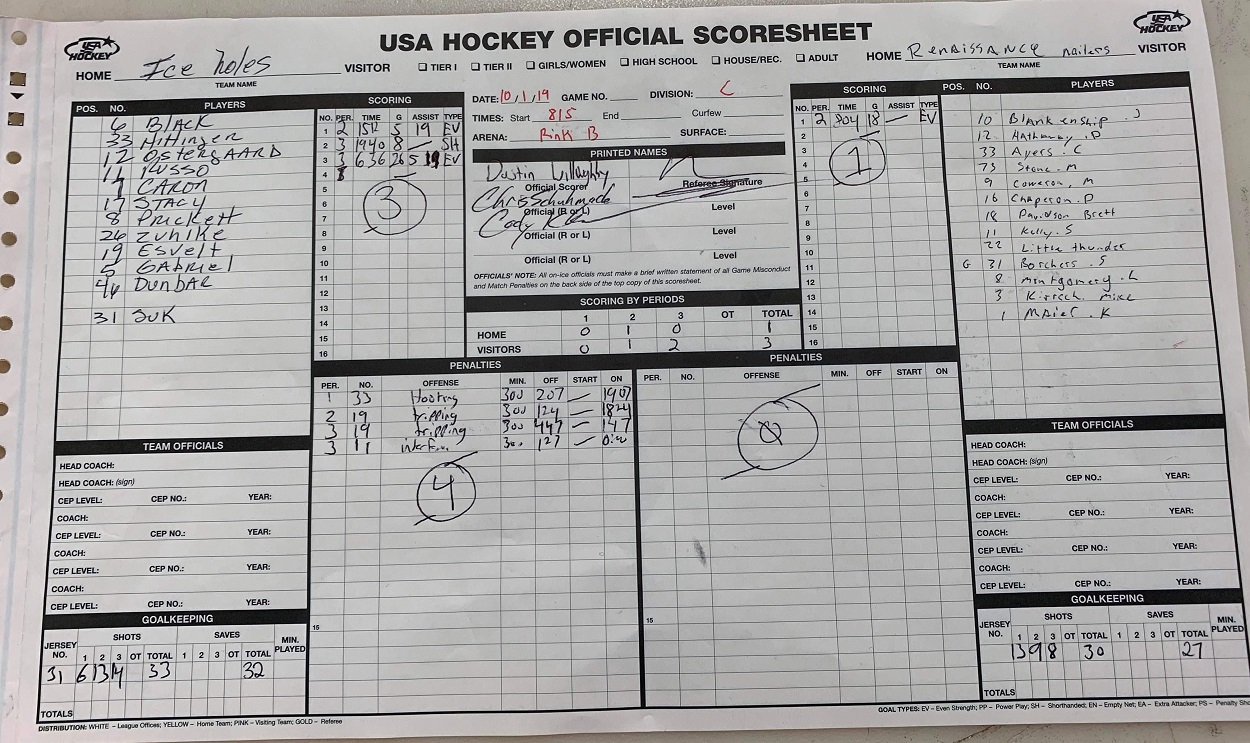 USA HOCKEY OFFICIAL SCORESHEET
USA HOCKEY
USA HOCKEY
HOME Ice holes VISITOR
TEAM NAME
TIER I TIER II GIRLS/WOMEN HIGH SCHOOL HOUSE/REC. ADULT
HOME Renaissance nailers VISITOR
TEAM NAME
POS. NO. PLAYERS
6 BLACK
33 Hittinger
12 OSTERGAARD
11 RUSSO
1 CARON
17 STACY
8 Prickett
26 Zuhlke
19 ESVELT
5 GABRIEL
44 DunBAR
31 SUK
SCORING
NO. PER. TIME G ASSIST TYPE
1 2 1512 5 19 EV
2 3 1940 8 — SH
3 3 636 26 5 19 EV
4
5
6
7
8
9
10
11
12
13
14
15
16
3
DATE: 10/1/19 GAME NO. DIVISION: C
TIMES: Start 815 End Curfew
ARENA: Rink B SURFACE:
PRINTED NAMES
Dustin Willoughby
Official Scorer Referee Signature
Chris
Official (R or L) Level
Cody
Official (R or L) Level
Official (R or L) Level
OFFICIALS' NOTE: All on-ice officials must make a brief written statement of all Game Misconduct
and Match Penalties on the back side of the top copy of this scoresheet.
SCORING BY PERIODS
1 2 3 OT TOTAL
HOME 0 1 0 1
VISITORS 0 1 2 3
SCORING
NO. PER. TIME G ASSIST TYPE
1 2 804 18 — EV
2
3
4
5
6
7
8
9
10
11
12
13
14
15
16
1
POS. NO. PLAYERS
10 Blankenship . J
12 Hathaway . D
33 Ayers . C
75 Stone . M
9 Comeron, M
16 Chaperon . D
18 Davidson Brett
11 Kelly . S
22 Little thunder
G 31 Borchers . S
8 Montgomery . L
3 Kirsech, Mike
1 MAier . K
PENALTIES
PER. NO. OFFENSE MIN. OFF START ON
1 33 Hooking 300 207 — 1907
2 19 tripping 300 124 — 1824
3 19 tripping 300 447 — 147
3 11 interf... 300 127 —
4
15
PENALTIES
PER. NO. OFFENSE MIN. OFF START ON
0
15
TEAM OFFICIALS
HEAD COACH:
HEAD COACH: (sign)
CEP LEVEL: CEP NO.: YEAR:
COACH:
CEP LEVEL: CEP NO.: YEAR:
COACH:
CEP LEVEL: CEP NO.: YEAR:
COACH:
CEP LEVEL: CEP NO.: YEAR:
GOALKEEPING
JERSEY NO. SHOTS SAVES MIN. PLAYED
1 2 3 OT TOTAL 1 2 3 OT TOTAL
31 6 13 14 33 32
TOTALS
TEAM OFFICIALS
HEAD COACH:
HEAD COACH: (sign)
CEP LEVEL: CEP NO.: YEAR:
COACH:
CEP LEVEL: CEP NO.: YEAR:
COACH:
CEP LEVEL: CEP NO.: YEAR:
COACH:
CEP LEVEL: CEP NO.: YEAR:
GOALKEEPING
JERSEY NO. SHOTS SAVES MIN. PLAYED
1 2 3 OT TOTAL 1 2 3 OT TOTAL
13 9 8 30 27
TOTALS
DISTRIBUTION: WHITE – League Offices; YELLOW – Home Team; PINK – Visiting Team; GOLD – Referee
GOAL TYPES: EV – Even Strength; PP – Power Play; SH – Shorthanded; EN – Empty Net; EA – Extra Attacker; PS – Penalty Sho